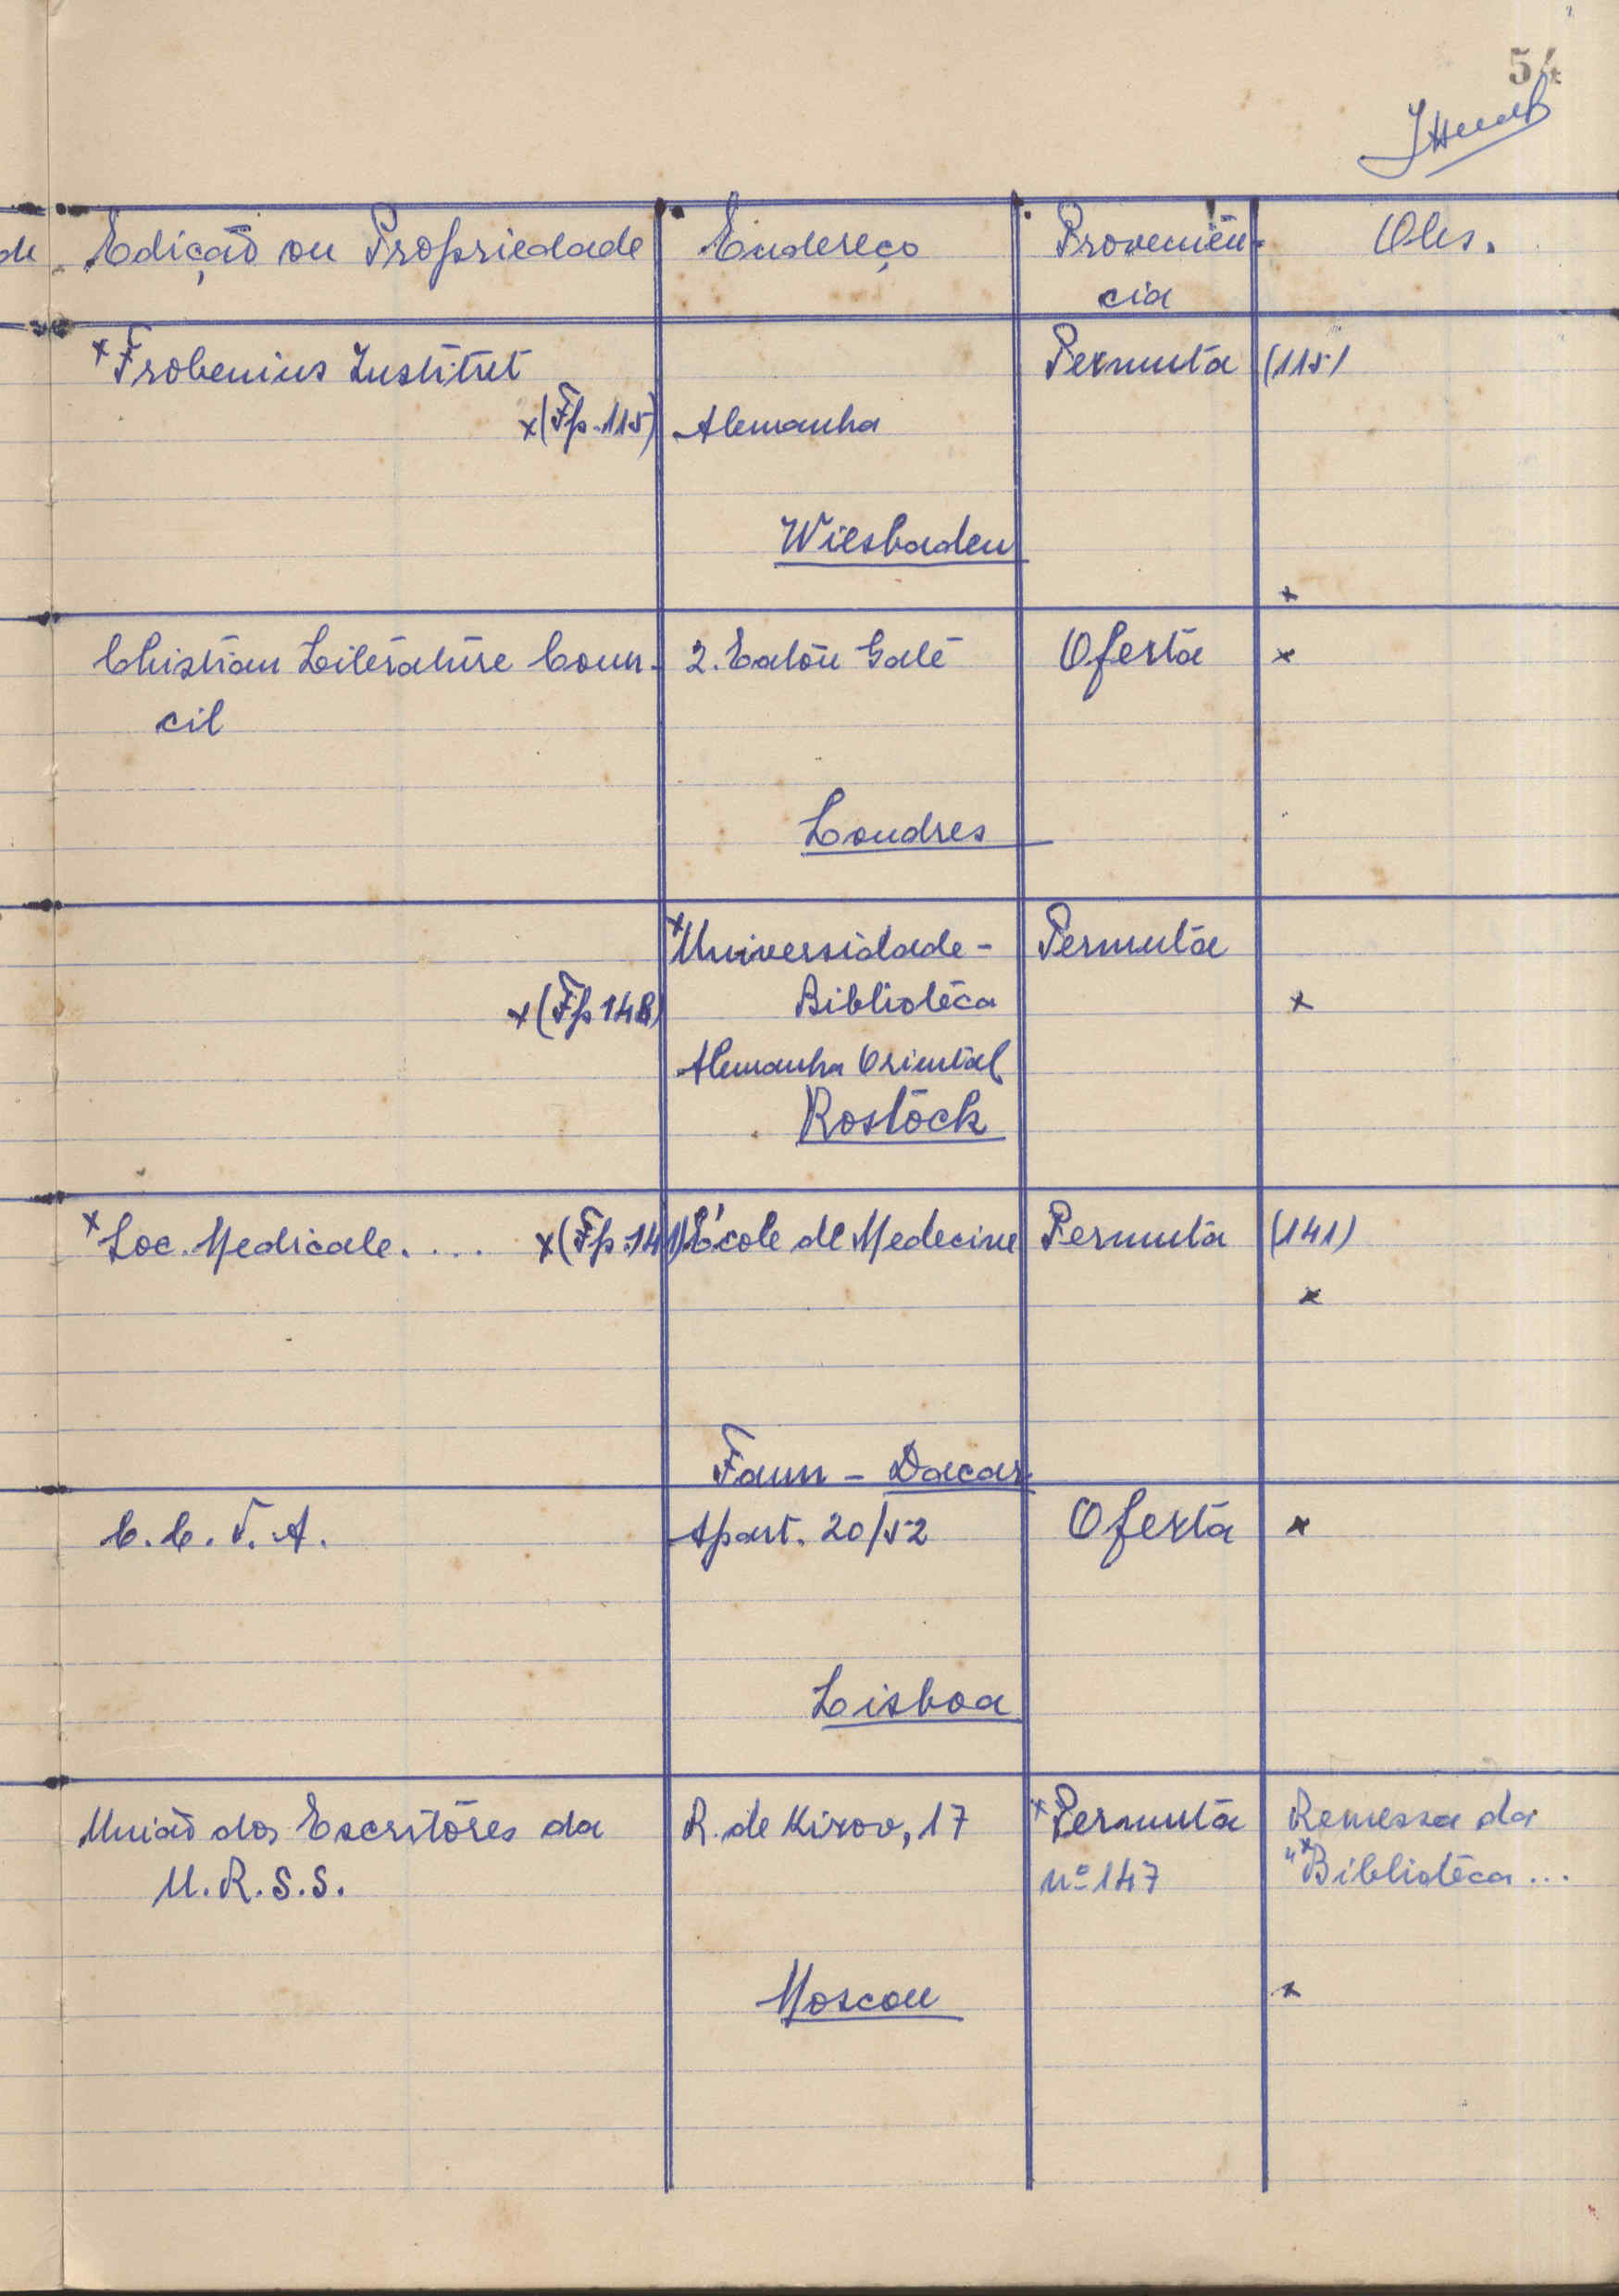 54
de Edição ou Propriedade Endereço Proveniên- Obs.
cia
x Frobenius Institut Permuta (115)
x (Fp. 115) Alemanha
Wiesbaden
x
Chistian Literature Coun- 2. Eaton Gate Oferta x
cil
Londres
x Universidade - Permuta
x (Fp 148) Biblioteca x
Alemanha Oriental
Rostock
x Soc. Medicale. ... x (Fp. 141) École de Medecine Permuta (141)
x
Faun - Dacar
C. C. T. A. Apart. 20/52 Oferta x
Lisboa
União dos Escritores da R. de Kirov, 17 x Permuta Remessa da
U.R.S.S. nº 147 "x Biblioteca ...
Moscou x